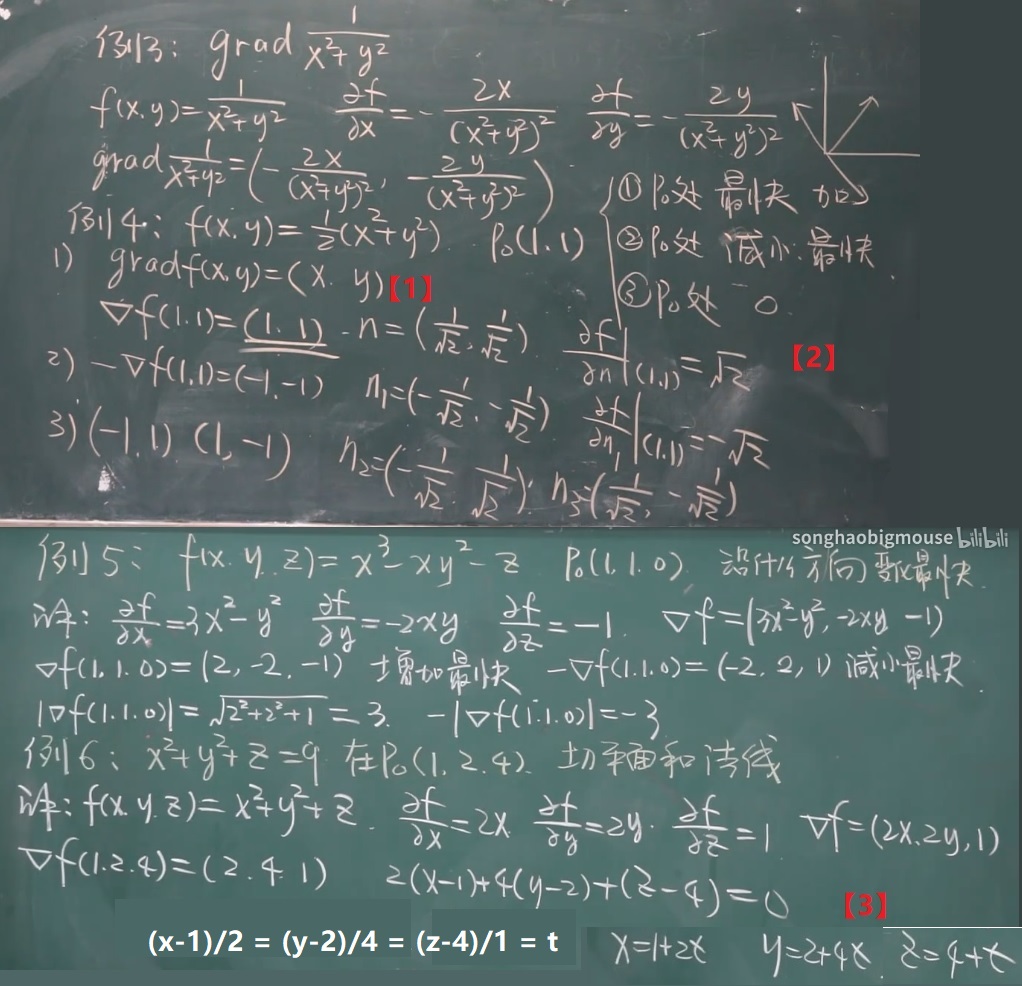 例3: grad 1/(x²+y²)
f(x.y)=1/(x²+y²) ∂f/∂x=-2x/(x²+y²)² ∂f/∂y=-2y/(x²+y²)²
grad 1/(x²+y²)=(-2x/(x²+y²)², -2y/(x²+y²)²)
① P₀处 最快 加
例4: f(x.y)=1/2(x²+y²) P₀(1.1)
② P₀处 减小 最快
1) gradf(x,y)=(x. y)【1】
③ P₀处 0
∇f(1,1)=(1.1) n=(1/√2, 1/√2) ∂f/∂n|(1,1)=√2 【2】
2) -∇f(1,1)=(-1,-1) n₁=(-1/√2, -1/√2) ∂f/∂n₁|(1,1)=-√2
3) (-1,1) (1,-1) n₂=(-1/√2 1/√2) n₃=(1/√2, -1/√2)
songhaobigmouse bilibili
例5: f(x.y.z)=x³-xy²-z P₀(1.1.0) 沿什么方向变化最快
解: ∂f/∂x=3x²-y² ∂f/∂y=-2xy ∂f/∂z=-1. ∇f=(3x²-y², -2xy -1)
∇f(1,1.0)=(2,-2,-1) 增加最快 -∇f(1.1.0)=(-2,2,1) 减小最快
|∇f(1.1.0)|=√(2²+2²+1)=3. -|∇f(1.1.0)|=-3
例6: x²+y²+z=9 在P₀(1.2.4). 切平面和法线
解: f(x.y.z)=x²+y²+z. ∂f/∂x=2x ∂f/∂y=2y. ∂f/∂z=1 ∇f=(2x.2y,1)
∇f(1.2.4)=(2.4.1) 2(x-1)+4(y-2)+(z-4)=0 【3】
(x-1)/2 = (y-2)/4 = (z-4)/1 = t x=1+2t y=2+4t z=4+t